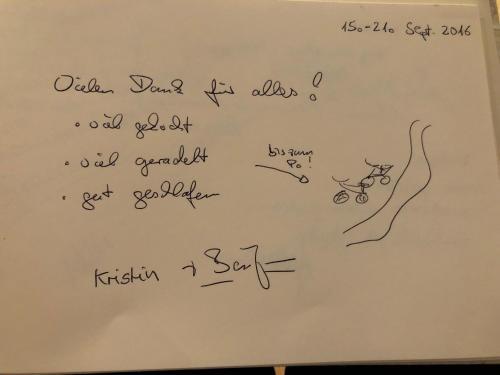 15.-21. Sept. 2016
Vielen Dank für alles!
• viel gekocht
• viel geradelt
• gut geschlafen
bis zum
Po!
Kristin +